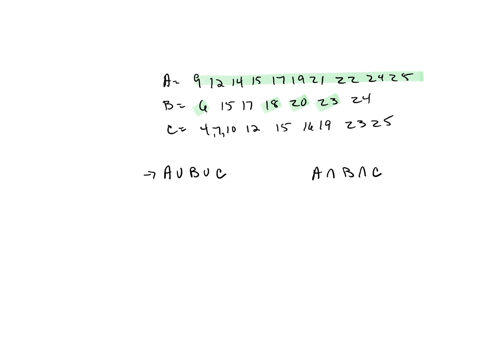 A = 9 12 14 15 17 19 21 22 24 25
B = 6 15 17 18 20 23 24
C = 4,7,10 12 15 16 19 23 25
→ A ∪ B ∪ C A ∩ B ∩ C